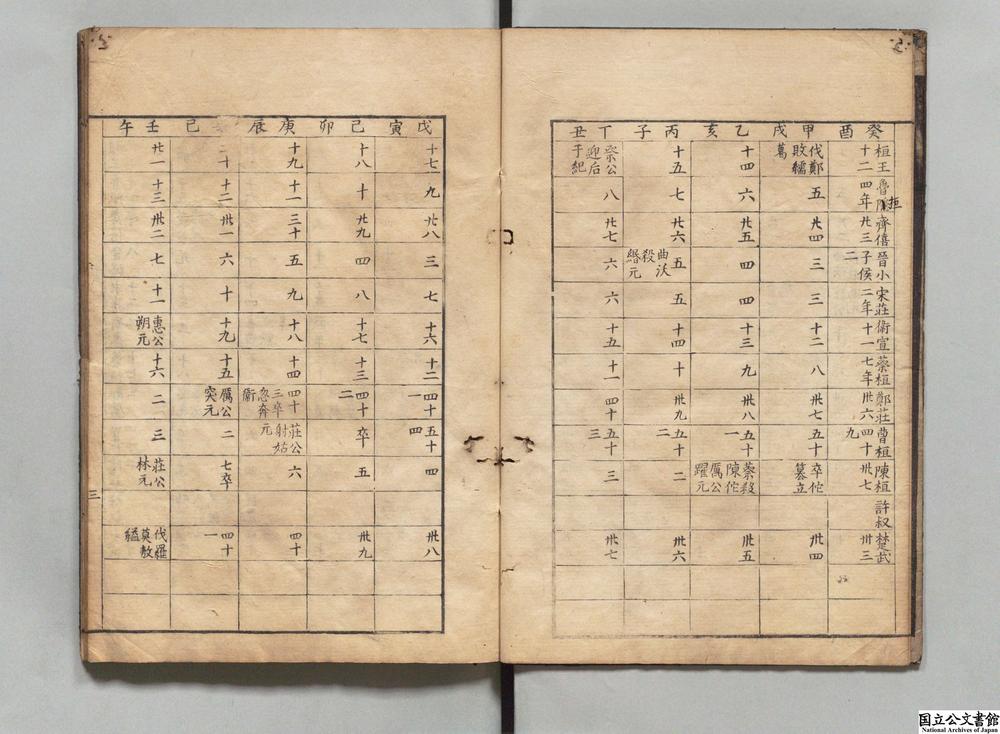 癸酉
桓王十二
魯桓四年
齊僖廿三
晉小子侯二
宋莊二年
衛宣十一
蔡桓七年
鄭莊卅六
曹桓四十九
陳桓卅七
許叔
楚武卅三
甲戌
伐鄭敗繻葛
五
廿四
三
三
十二
八
卅七
五十
卒佗篡立
卅四
乙亥
十四
六
廿五
四
四
十三
九
卅八
五十一
蔡殺陳佗厲公躍元
卅五
丙子
十五
七
廿六
五曲沃殺緡元
五
十四
十
卅九
五十二
二
卅六
丁丑
祭公迎后于紀
八
廿七
六
六
十五
十一
四十
五十三
三
卅七
戊寅
十七
九
廿八
三
七
十六
十二
四十一
五十四
四
卅八
己卯
十八
十
廿九
四
八
十七
十三
四十二
卒
五
卅九
庚辰
十九
十一
三十
五
九
十八
十四
四十三卒忽奔衛
莊公射姑元
六
四十
巳
二十
十二
卅一
六
十
十九
十五
厲公突元
二
七卒
四十一
壬午
廿一
十三
卅二
七
十一
惠公朔元
十六
二
三
莊公林元
伐羅莫敖縊
三
国立公文書館
National Archives of Japan